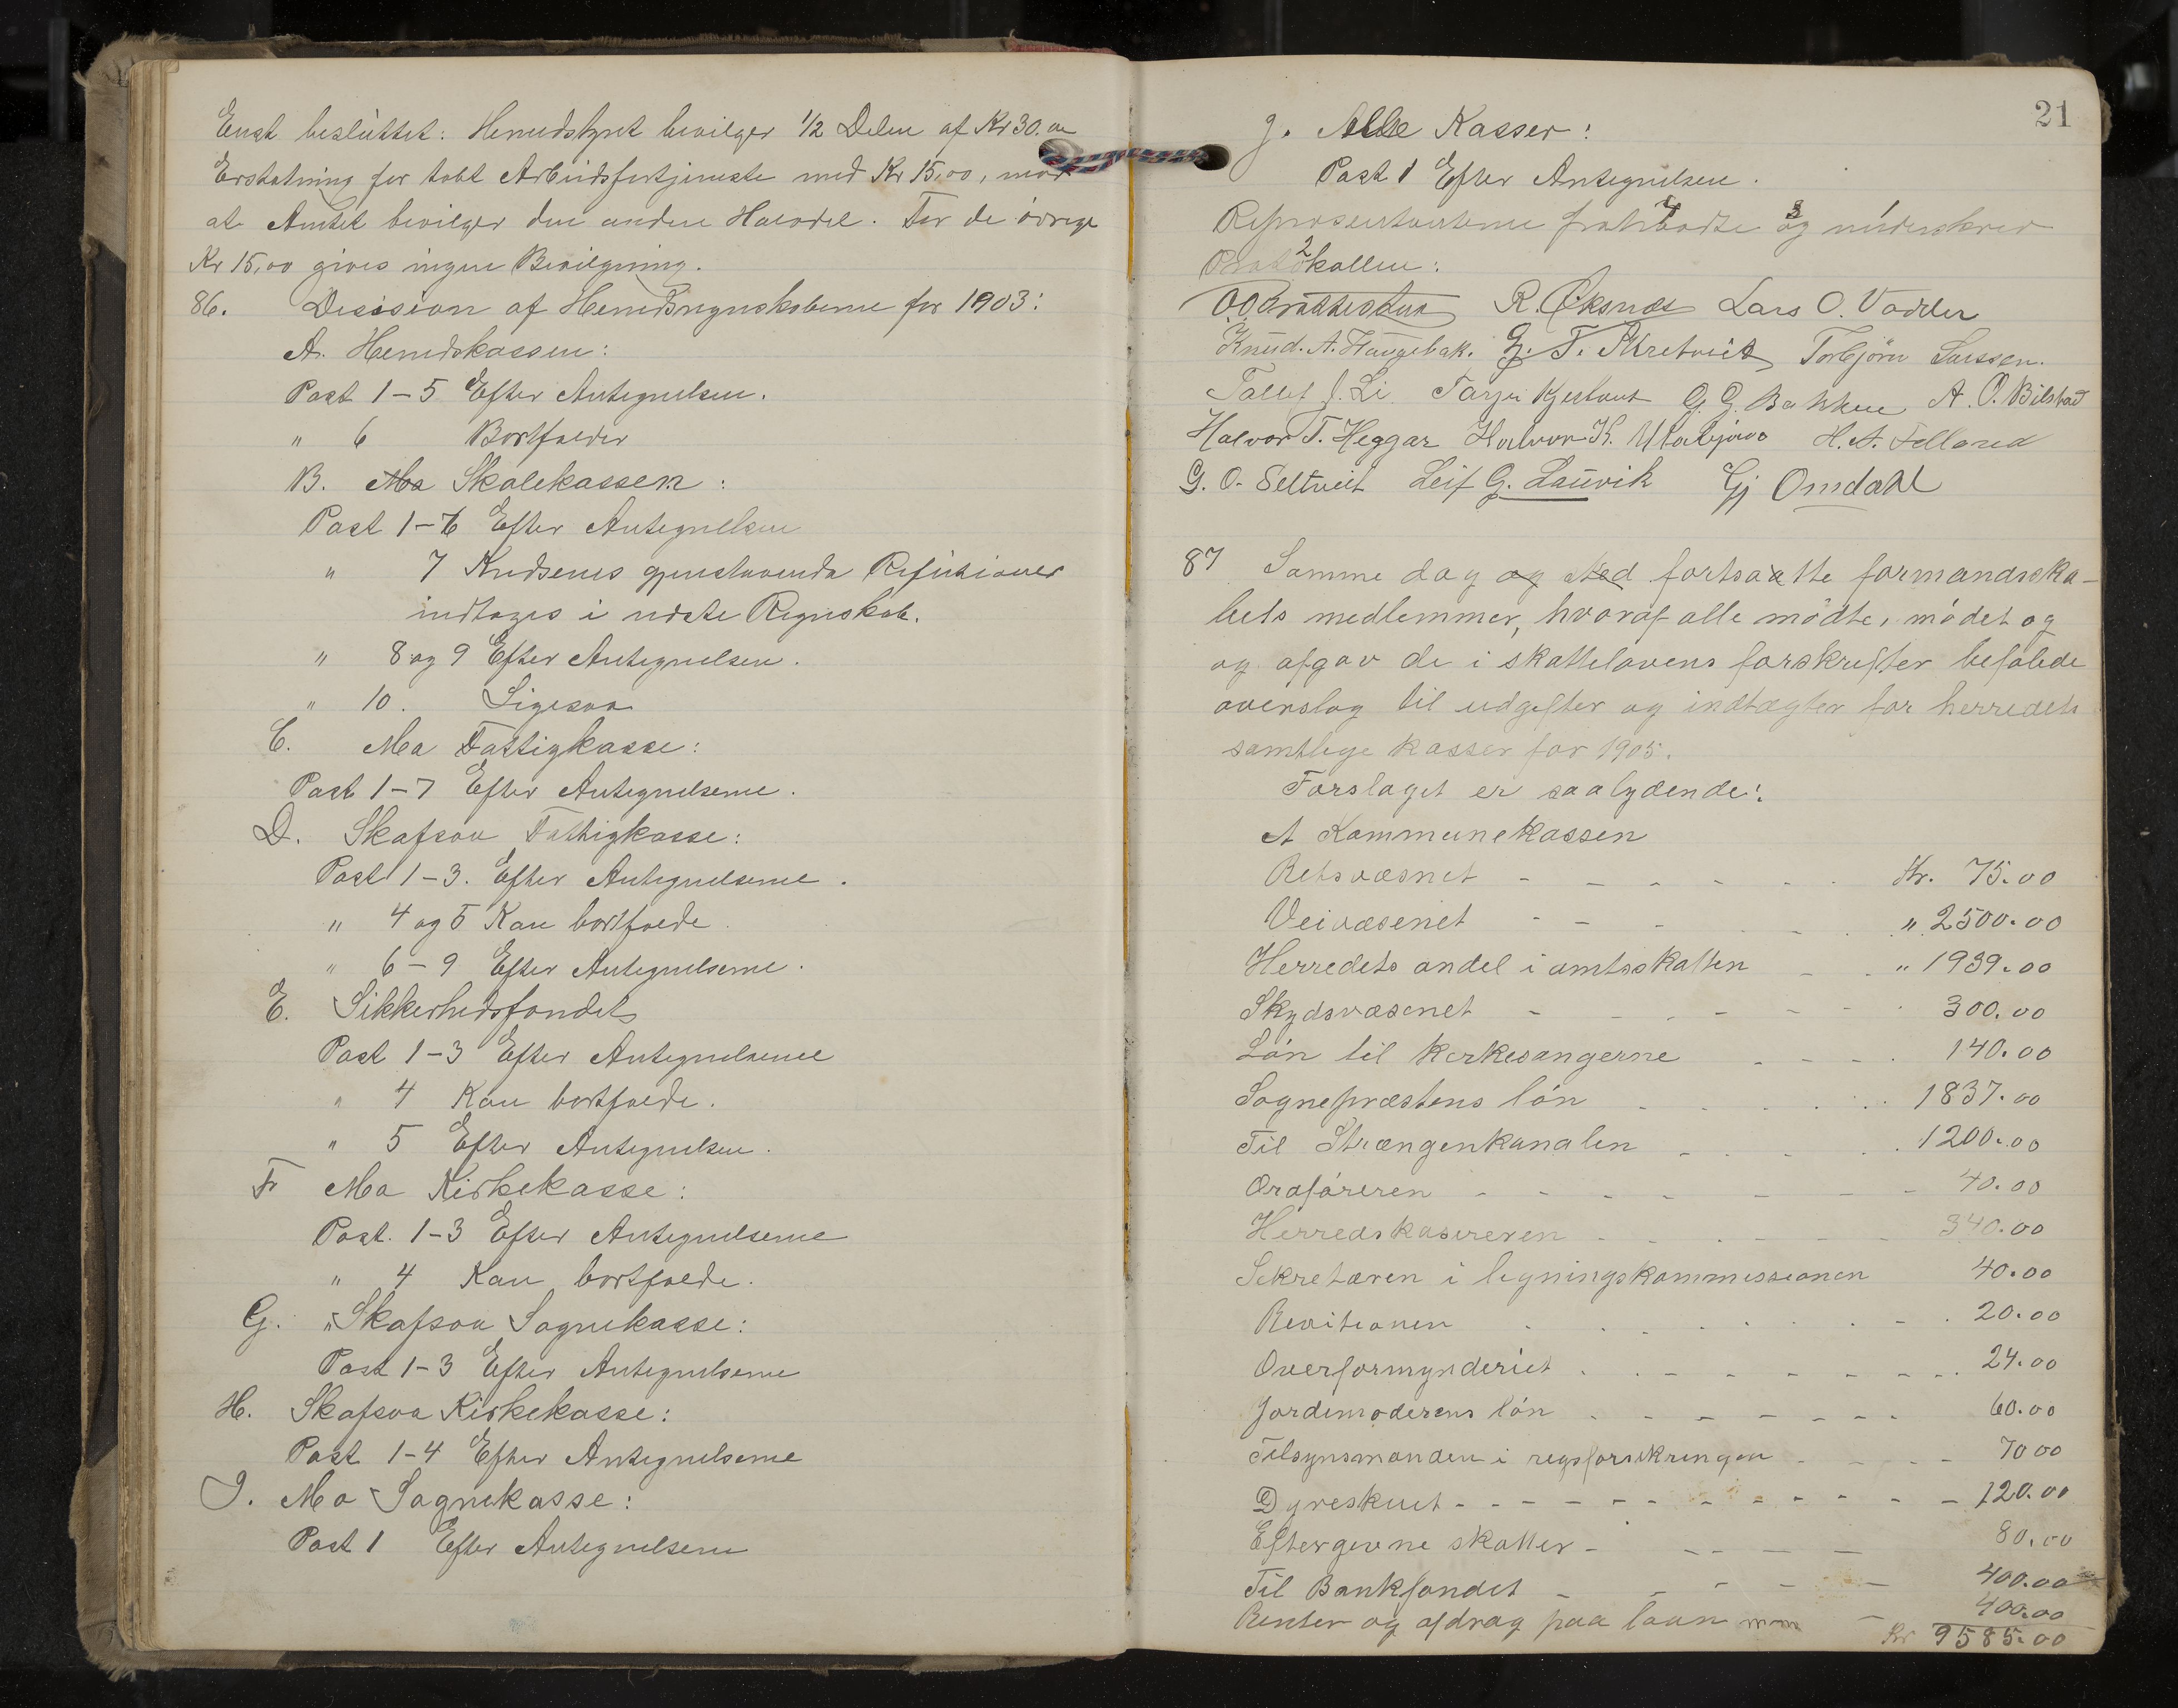 Enst besluttet: Herredstyret bevilger 1/2 Delen af Kr 30.00
Erstatning for tabt Arbeidsfortjeneste med Kr 15,00, mod
at Amtet bevilger den anden Halvdel. For de øvrige
Kr 15,00 gives ingen Bevilgning.
86. Desision af Herredsregnskaberne for 1903:
A. Herredskassen:
Post 1-5 Efter Antegnelsen.
" 6 Bortfalder
B. Mo Skolekassen:
Post 1-6 Efter Antegnelsen
" 7 Kredsenes gjenstaaende Refusioner
indtages i neste Regnskab.
" 8 og 9 Efter Antegnelsen.
" 10. Ligesaa
C. Mo Fattigkasse:
Post 1-7 Efter Antegnelserne.
D. Skafsaa Fattigkasse:
Post 1-3. Efter Antegnelserne.
" 4 og 5 Kan bortfalde.
" 6-9 Efter Antegnelserne.
E. Sikkerhedsfondet
Post 1-3 Efter Antegnelserne
" 4 Kan bortfalde.
" 5 Efter Antegnelsen.
F Mo Kirkekasse:
Post. 1-3 Efter Antegnelserne
" 4 Kan bortfalde.
G. "Skafsaa Sognekasse:
Post 1-3 Efter Antegnelserne
H. Skafsaa Kirkekasse:
Post 1-4 Efter Antegnelserne
I. Mo Sognekasse:
Post 1 Efter Antegnelsen
21
J. Alle Kasser:
Post 1 Efter Antegnelsen.
Repræsentanterne fratraadte og underskrev
Protokollen:
O O Brattestaa R. Øksnes Lars O. Vadder
Knud. A. Haugebak. G. T. Skretveit Torbjørn Larssen.
Tallef J. Li Tarjei Kjestveit G. G. Bakken A. O. Bilstad
Halvor T. Heggar Halvor K. Utabjaaa H. A. Felland
G. O. Seltveit Leif G. Lauvik Gj Omdahl
87 Samme dag og sted fortsatte formandska-
bets medlemmer, hvoraf alle mødte, mødet og
og afgav de i skattelovens forskrifter befalede
overslag til udgifter og indtægter for herredets
samtlige kasser for 1905.
Forslaget er saalydende:
A Kommunekassen
Retsvæsnet - - - - - - Kr. 75.00
Veivæsenet - - - - - " 2500.00
Herredets andel i amtsskatten - - " 1939.00
Skydsvæsenet - - - - - - 300.00
Løn til kirkesangerne - - - - 140.00
Sognepræstens løn - - - - - 1837.00
Til Strængenkanalen - - - - 1200.00
Ordføreren - - - - - - - 40.00
Herredskassereren - - - - - - 340.00
Sekretæren i ligningskommissionen 40.00
Revisionen - - - - - - 20.00
Overformynderiet - - - - - - - 24.00
Jordemoderens løn - - - - - - - 60.00
Tilsynsmanden i regsforsikringen - - - - 70 00
Dyreskuet - - - - - - - - - - - 120.00
Eftergivne skatter - - - - - 80.00
Til Bankfondet - - - - - 400.00
Renter og afdrag paa laan m m - 400.00
Kr 9585.00